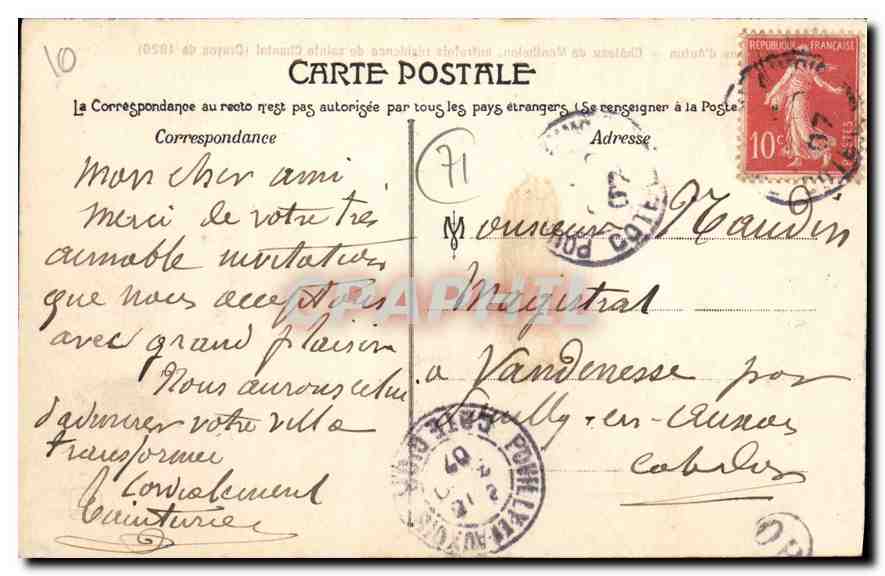 10
Château de Monthelon, autrefois résidence de sainte Chantal (Crayon de 1820)
CARTE POSTALE
La Correspondance au recto n'est pas autorisée par tous les pays étrangers (Se renseigner à la Poste
Correspondance
Adresse
71
RÉPUBLIQUE FRANÇAISE
10c
POSTES
07
Mon cher ami
Merci de votre très
aimable invitation
que nous acceptons
avec grand plaisir
Nous aurons celui
d'admirer votre villa
transformée
Cordialement
Monsieur Naudin
Magistrat
a Vandenesse par
Pouilly-en-Auxois
CRAPHIL
POUILLY-EN-AUXOIS
COTE D'OR
07